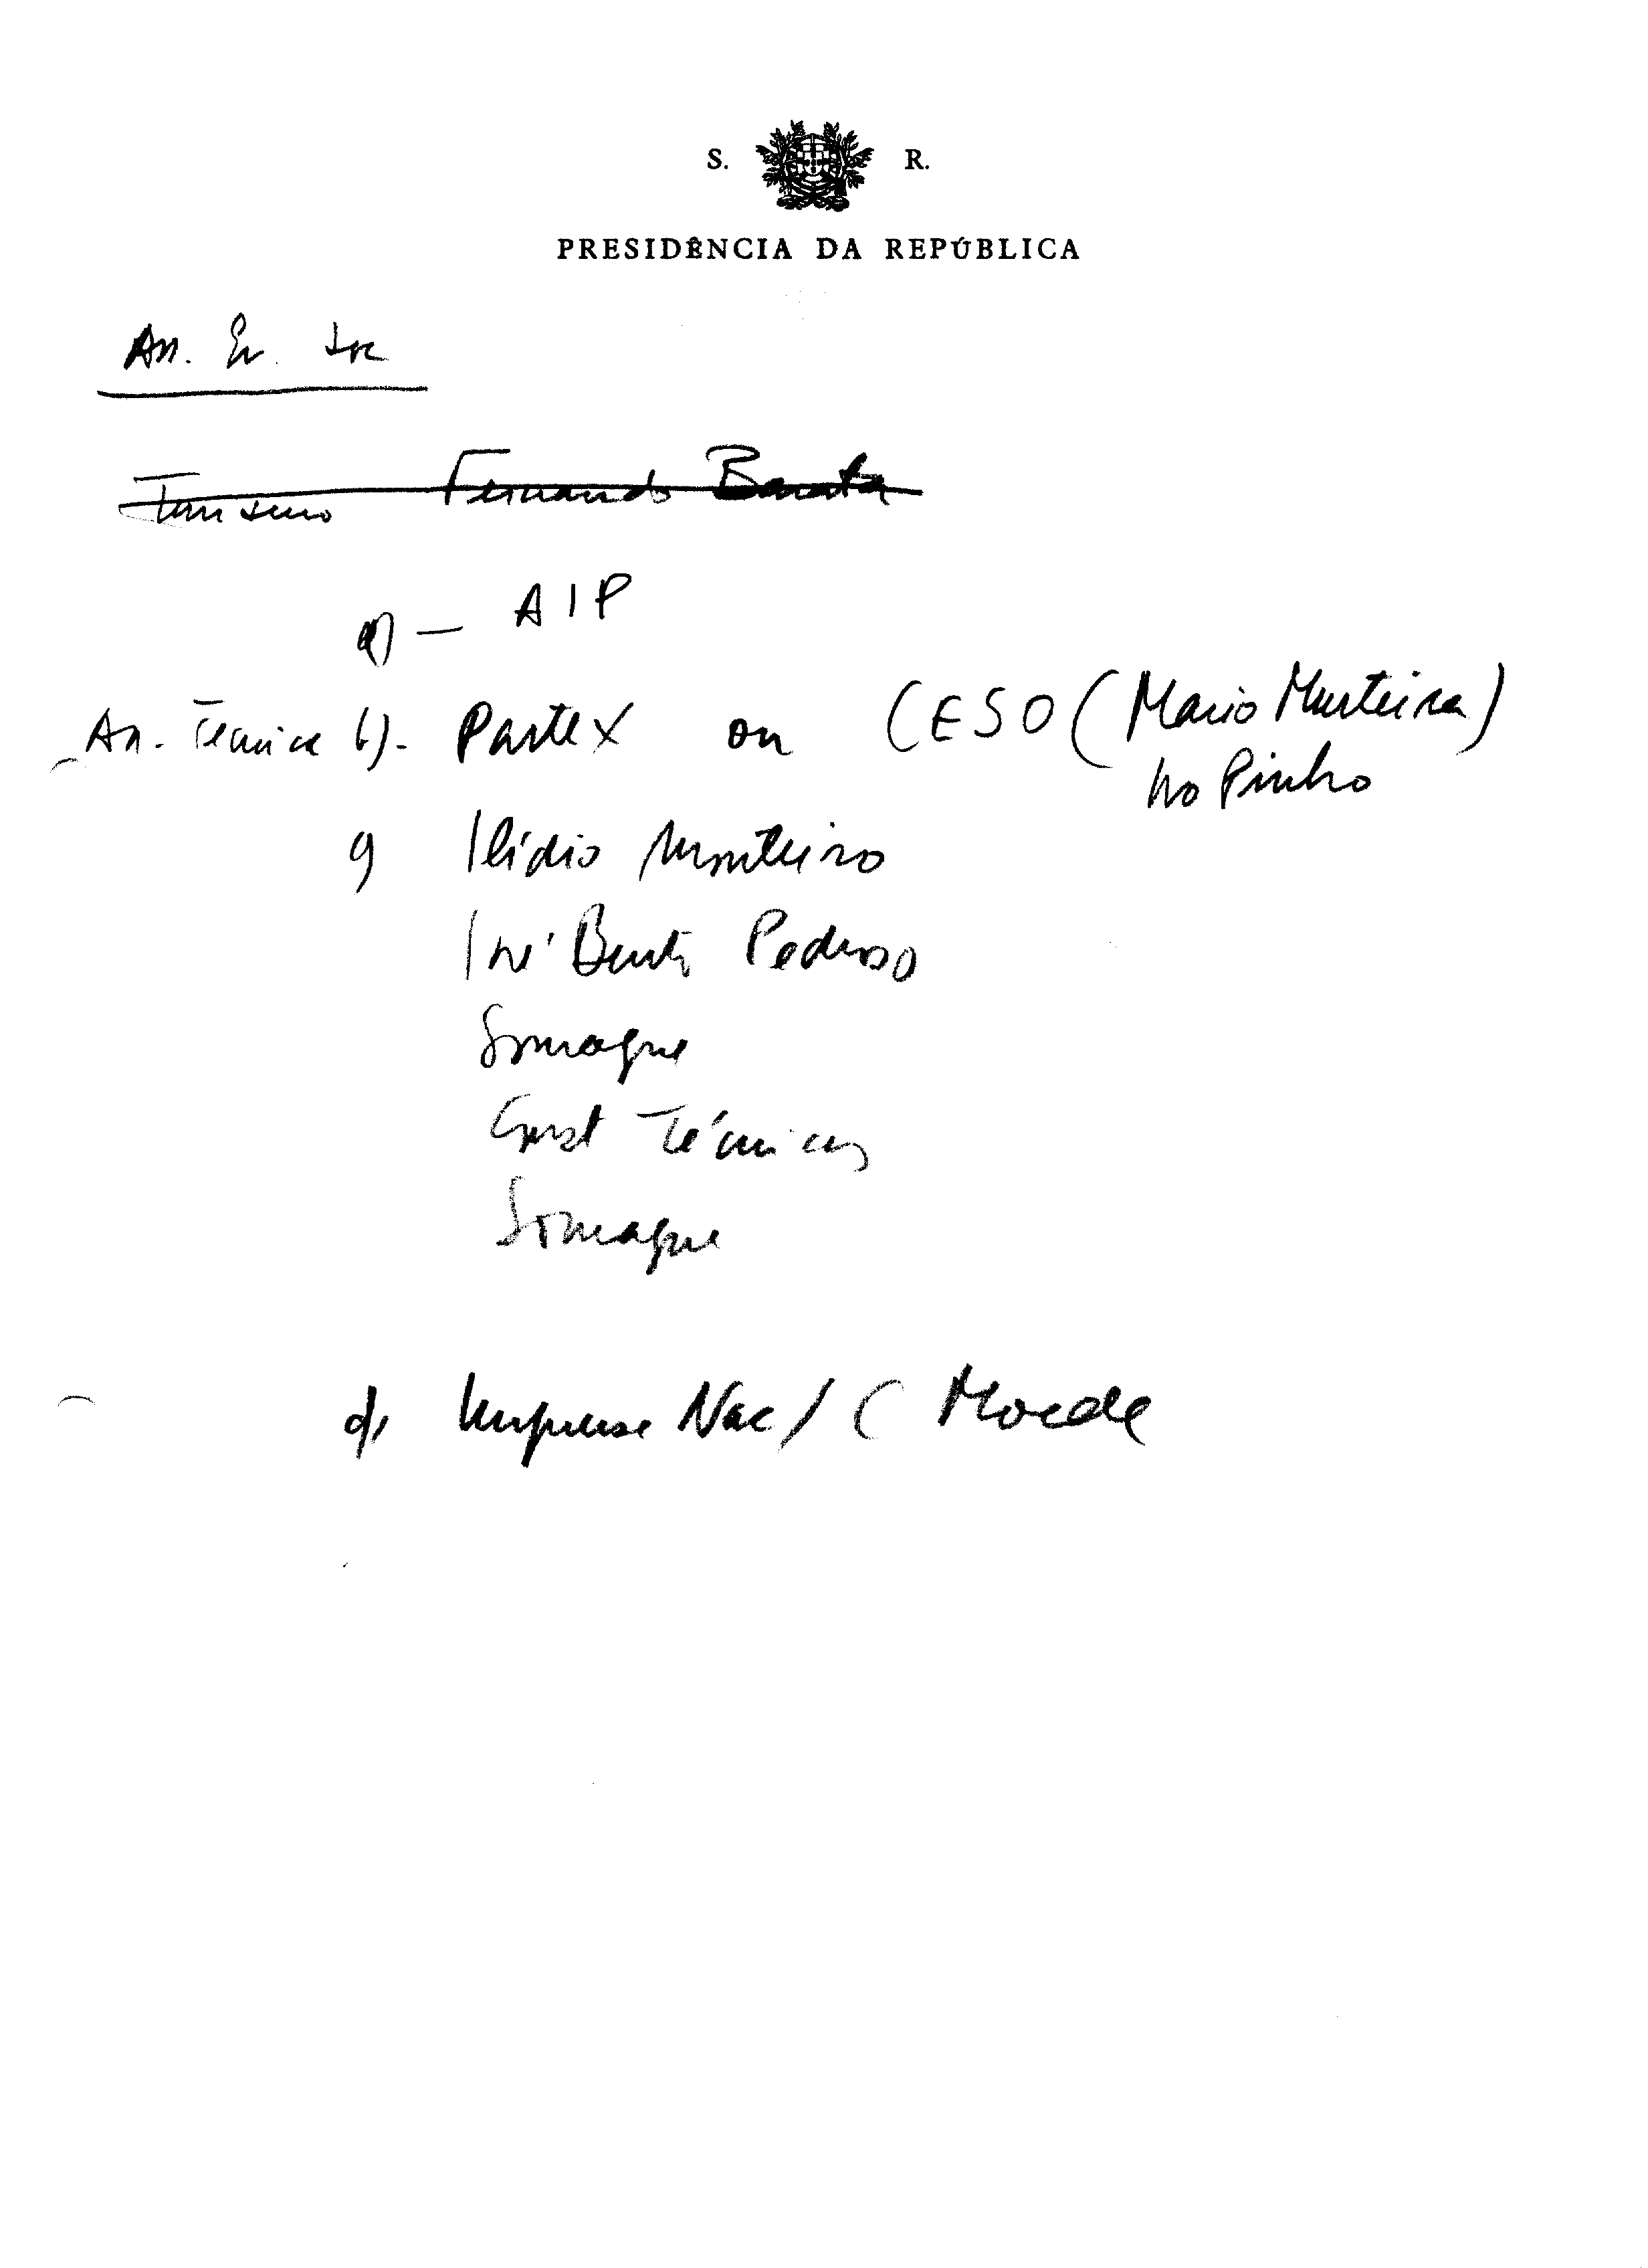 S. R.
PRESIDÊNCIA DA REPÚBLICA
An. Ec. Soc
Turismo Fernando Barata
a) — AIP
An. Técnica b). Partex ou CESO (Mario Murteira)
Ivo Pinho
c) Ilídio Monteiro
José Bento Pedroso
Somague
Const Técnicas
Somague
d) Imprensa Nac / C Moeda